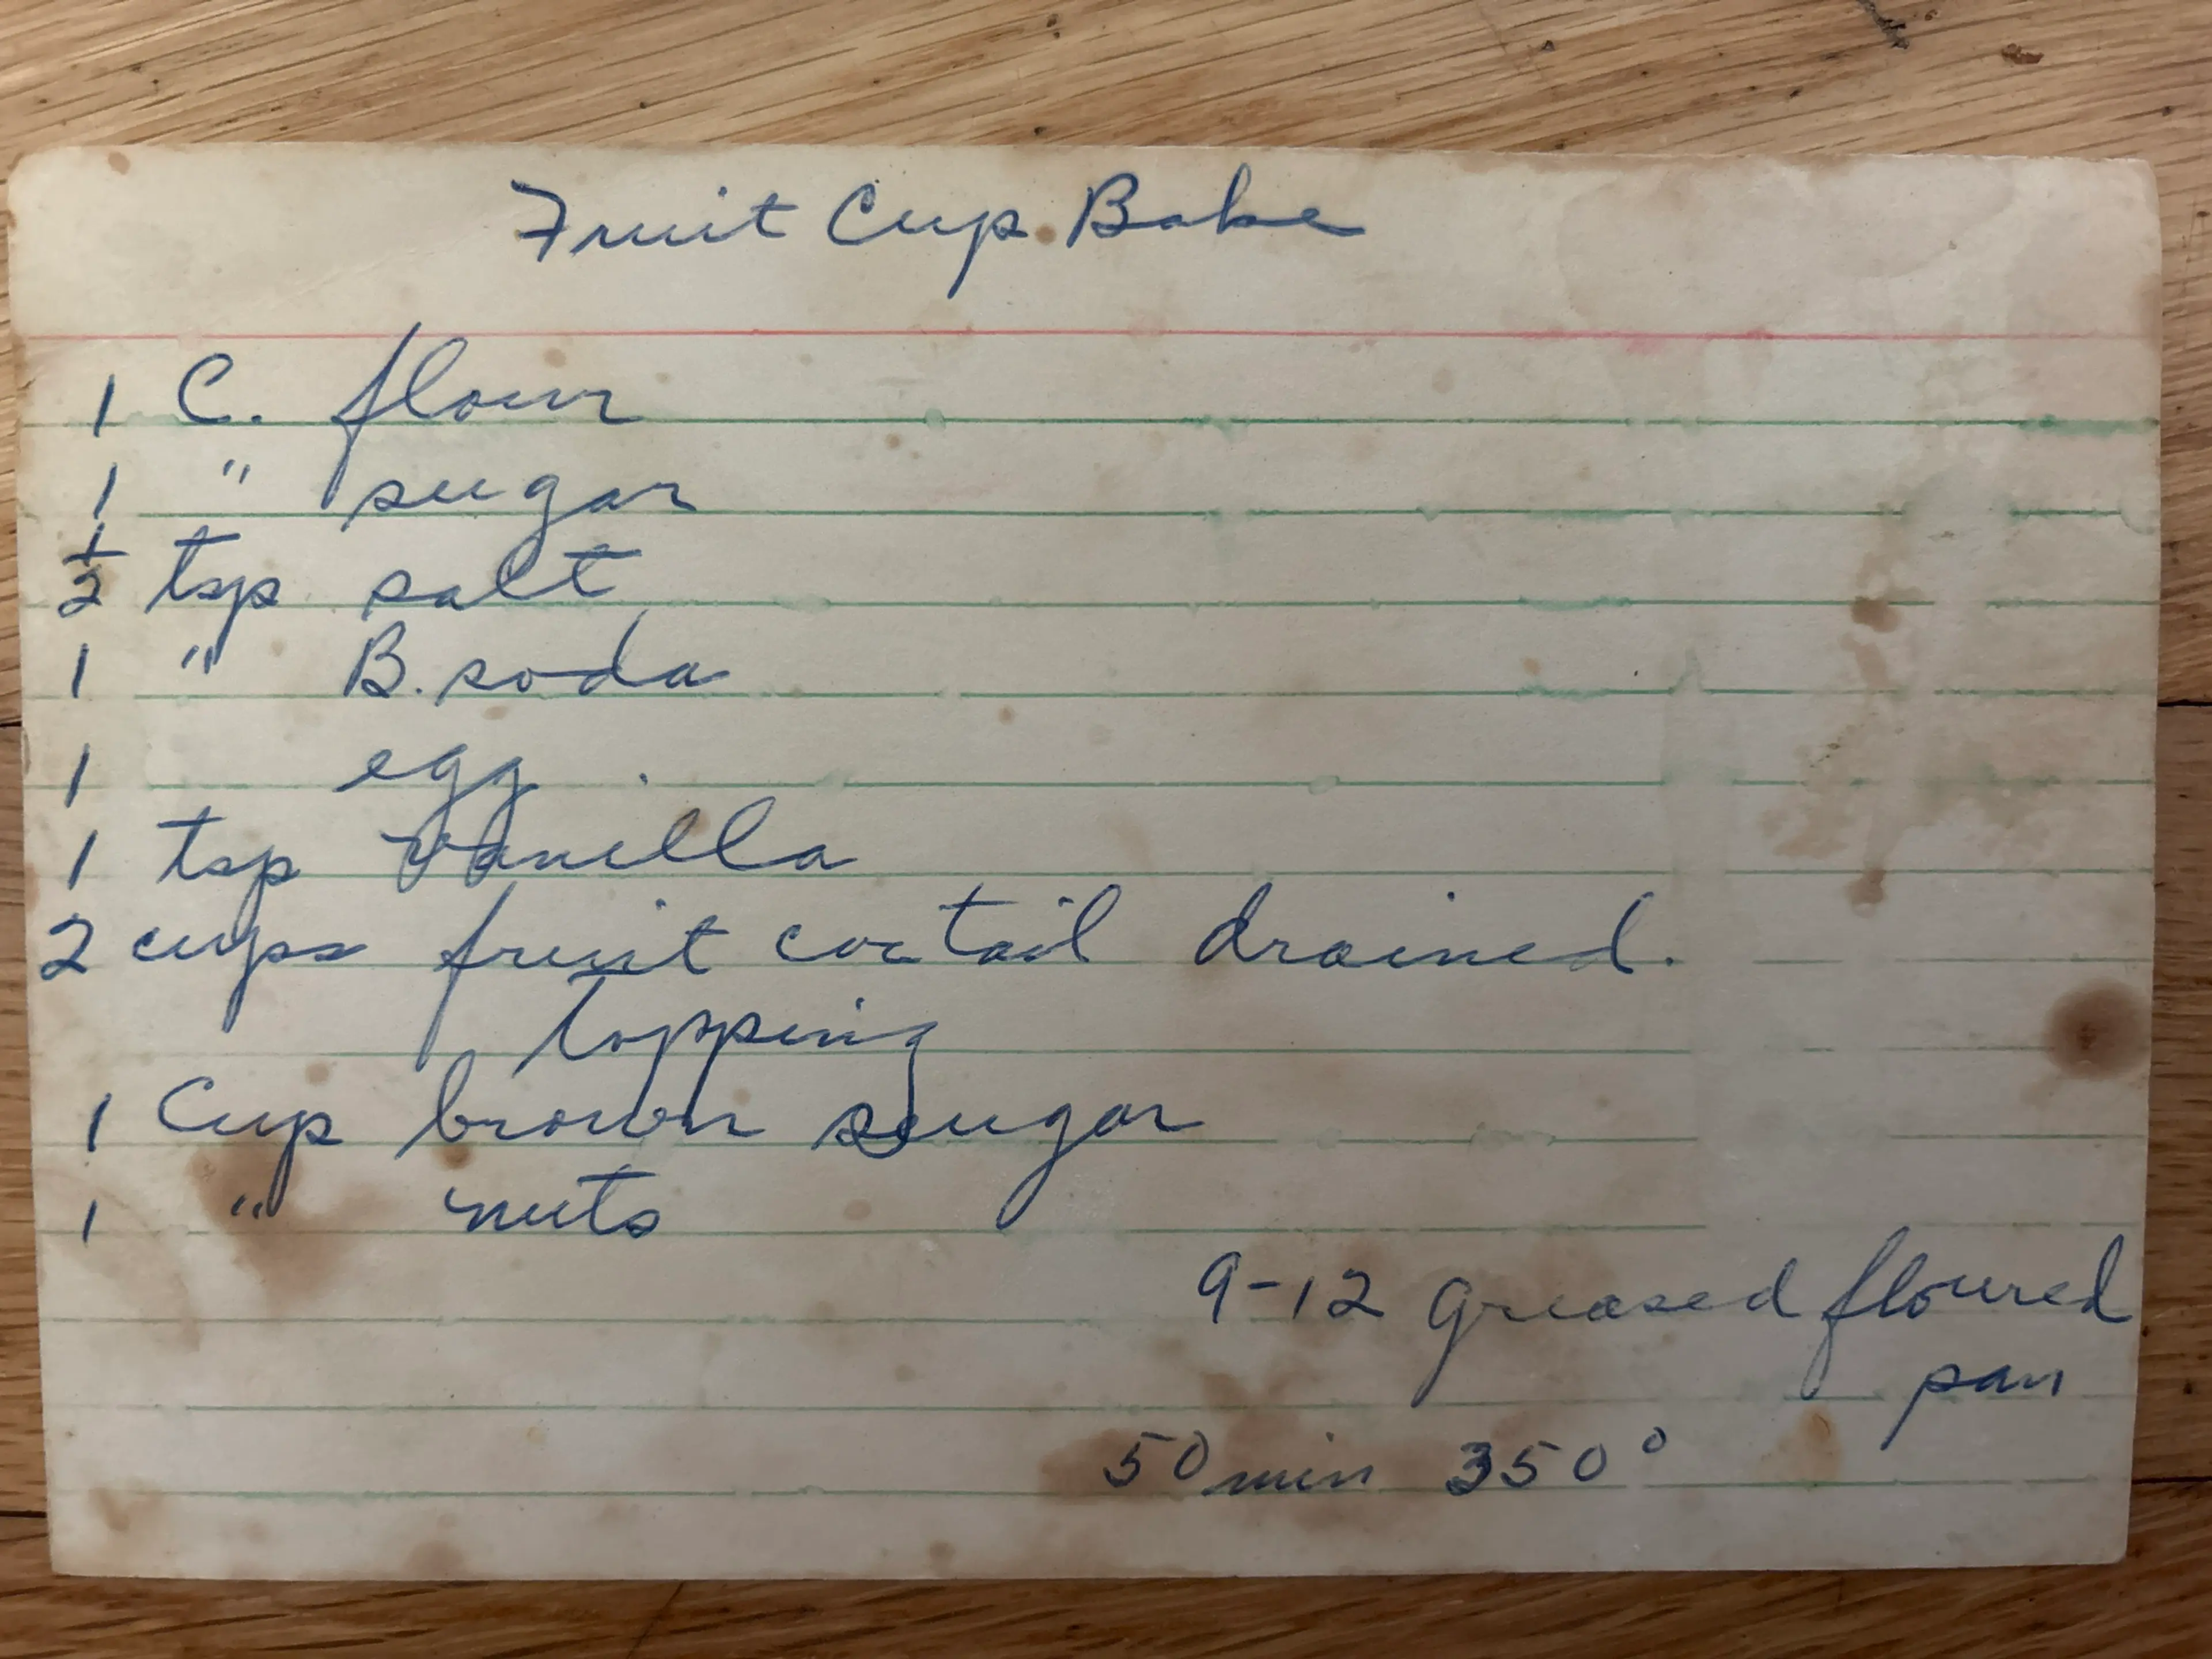 Fruit Cup Bake
1 C. flour
1 " sugar
1/2 tsp salt
1 " B. soda
1 egg
1 tsp vanilla
2 cups fruit coctail drained.
topping
1 Cup brown sugar
1 " nuts
9-12 greased floured
pan
50 min 350°